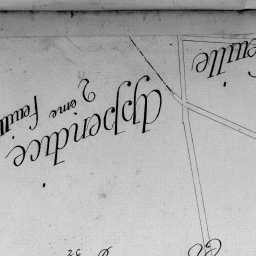 Appendice
2 eme feuill
feuille